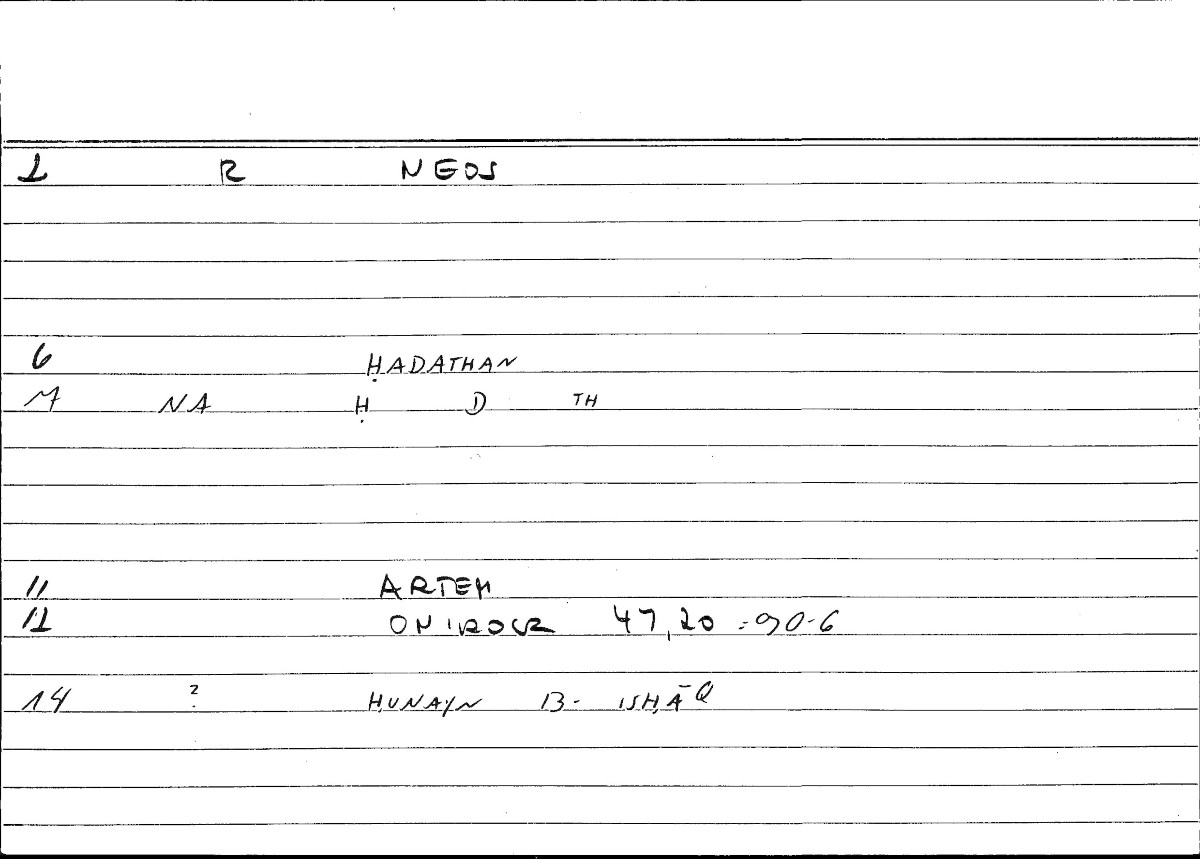 2 R NEOS
6 ḤADATHAN
7 NA Ḥ D TH
11 ARTEM
12 ONIROCR 47,20 = 90-6
14 ? ḤUNAYN B- ISḤĀQ